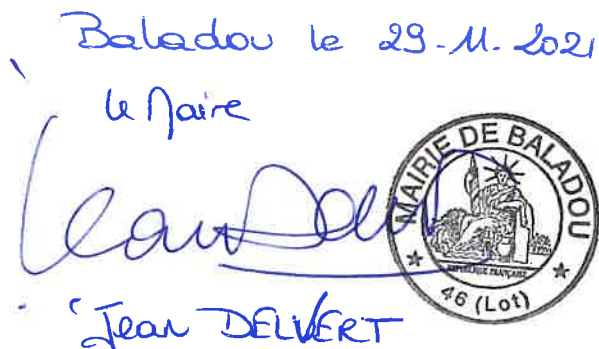 Baladou le 29-11-2021
le Maire
MAIRIE DE BALADOU
RÉPUBLIQUE FRANÇAISE
46 (Lot)
Jean DELVERT